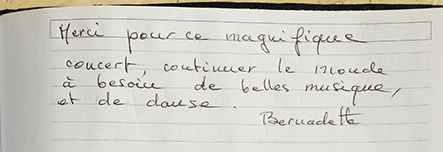 Merci pour ce magnifique
concert, continuer le monde
à besoin de belles musique,
et de danse.
Bernadette